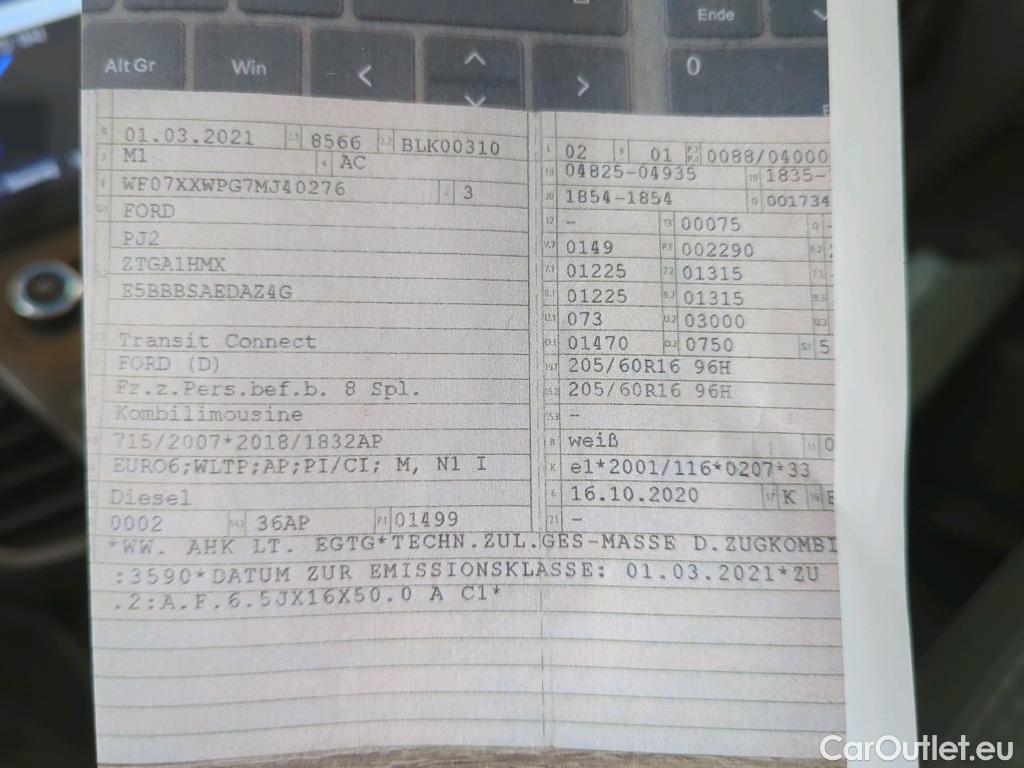 Ende
Alt Gr
Win
0
B 01.03.2021 2.1 8566 2.2 BLK00310
J M1 4 AC
E WF07XXWPG7MJ40276 3 3
D.1 FORD
D.2 PJ2
ZTGA1HMX
E5BBBSAEDAZ4G
D.3 Transit Connect
FORD (D)
Fz.z.Pers.bef.b. 8 Spl.
Kombilimousine
715/2007*2018/1832AP
EURO6;WLTP;AP;PI/CI; M, N1 I
Diesel
0002 14.1 36AP P.1 01499
L 02 9 01 P.2 P.4 0088/04000
18 04825-04935 19 1835-
20 1854-1854 G 001734
12 - 13 00075 Q -
V.7 0149 F.1 002290 F.2
7.1 01225 7.2 01315 7.3
8.1 01225 8.2 01315 8.3
U.1 073 U.2 03000 U.3
O.1 01470 O.2 0750 S.1 5
15.1 205/60R16 96H
15.2 205/60R16 96H
15.3 -
R weiß 11 0
K e1*2001/116*0207*33
6 16.10.2020 17 K 16
21 -
*WW. AHK LT. EGTG*TECHN.ZUL.GES-MASSE D.ZUGKOMBI
:3590*DATUM ZUR EMISSIONSKLASSE: 01.03.2021*ZU
.2:A.F.6.5JX16X50.0 A C1*
CarOutlet.eu